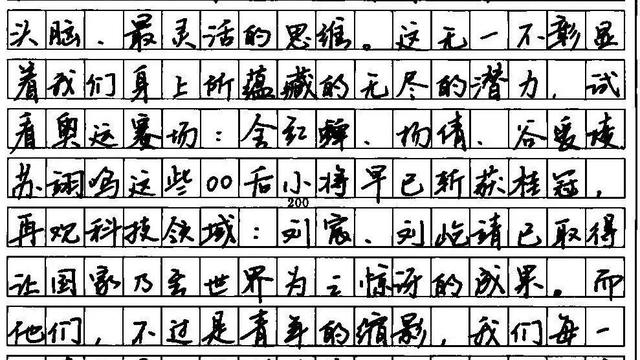 头脑、最灵活的思维。这无一不彰显
着我们身上所蕴藏的无尽的潜力，试
看奥运赛场：全红婵、杨倩、谷爱凌
苏翊鸣这些00后小将早已斩获桂冠，
200
再观科技领域：刘家、刘屹请已取得
让国家乃至世界为之惊讶的成果。而
他们，不过是青年的缩影，我们每一